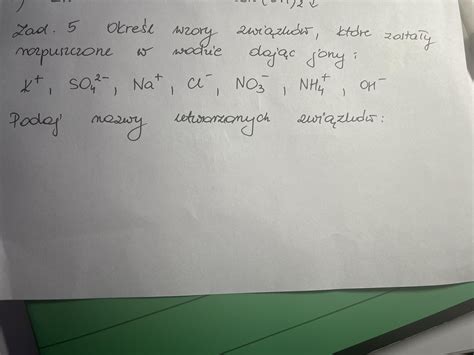 Zad. 5 Określ wzory związków, które zostały
rozpuszczone w wodzie dając jony:
K⁺, SO₄²⁻, Na⁺, Cl⁻, NO₃⁻, NH₄⁺, OH⁻
Podaj nazwy utworzonych związków: